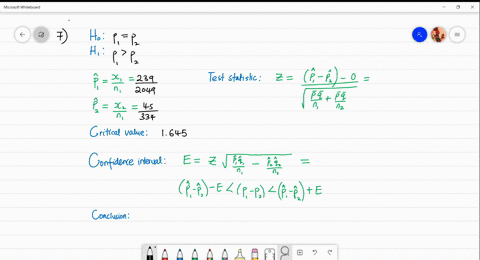 Microsoft Whiteboard
7) H₀: p₁ = p₂
H₁: p₁ > p₂
p̂₁ = x₁/n₁ = 239/2049
Test statistic: Z = (p̂₁ - p̂₂) - 0 / √(p̄q̄/n₁ + p̄q̄/n₂) =
p̂₂ = x₂/n₂ = 45/334
Critical value: 1.645
Confidence interval: E = Z √(p̂₁q̂₁/n₁ - p̂₂q̂₂/n₂) =
(p̂₁-p̂₂)-E < (p₁-p₂) < (p̂₁-p̂₂)+E
Conclusion: